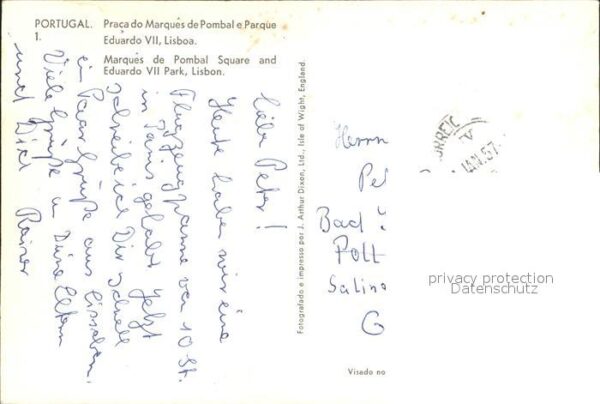 PORTUGAL. Praça do Marquês de Pombal e Parque
1. Eduardo VII, Lisboa.
Marquês de Pombal Square and
Eduardo VII Park, Lisbon.
Lieber Peter!
Heute haben wir eine
Flugzeugpanne von 10 St.
in Paris gehabt. Jetzt
schreibe ich Dir schnell
ein Paar Grüße aus Lissabon.
Viele Grüße an Deine Eltern
und Dich Rainer
Fotografado e impresso por J. Arthur Dixon, Ltd., Isle of Wight, England.
Herrn
Pet
Bad
Salino
G
privacy protection
Datenschutz
Visado no